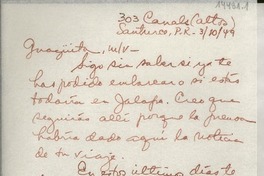 14431.1
303 Canals (altos)
Santurce, P.R. - 3/10/49
M/V -
Sigo sin saber si ya te
has podido embarcar o si estás
todavía en Jalapa. Creo que
seguirás allí porque la prensa
habría dado aquí la noticia
de tu viaje.
En esto último días te